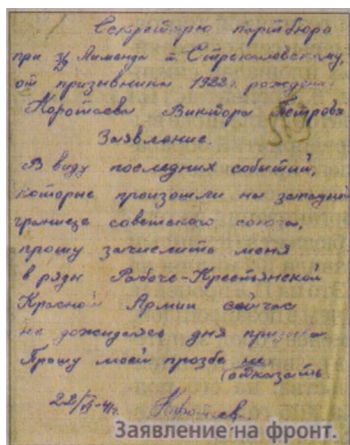 Секретарю партбюро
при з/у Лименда т. Стрекаловскому,
от призывника 1922 г. рождения
Коротаева Виктора Петров
Заявление.
В виду последних событий,
которые произошли на западной
границе советского союза,
прошу зачислить меня
в ряды Рабоче-Крестьянской
Красной Армии сейчас
не дожидаясь дня призыва
Прошу моей прозбе не
отказать
22/VI-41г. Коротаев
Заявление на фронт.